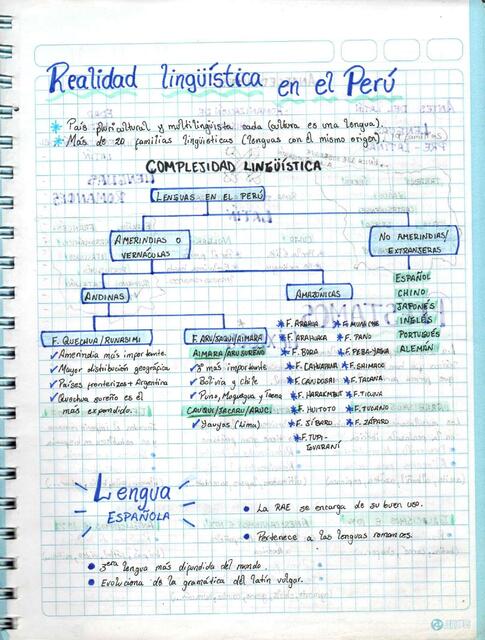 Realidad lingüística en el Perú
* País pluricultural y multilingüista cada (cultura es una lengua).
* Más de 20 familias lingüísticas (lenguas con el mismo origen)
COMPLEJIDAD LINGÜÍSTICA
LENGUAS EN EL PERÚ
AMERINDIAS O VERNÁCULAS
NO AMERINDIAS/ EXTRANJERAS
ANDINAS
AMAZÓNICAS
ESPAÑOL
CHINO
JAPONÉS
INGLÉS
PORTUGUÉS
ALEMÁN
F. QUECHUA/RUNASIMI
✓ Amerindia más importante.
✓ Mayor distribución geográfica
✓ Países fronterizos + Argentina
✓ Quechua sureño es el
más expandido.
F. ARU/SAQUI/AIMARA
AIMARA/ARU SUREÑO
✓ más importante
✓ Bolivia y Chile
✓ Puno, Moquegua y Tacna
CAUQUI/JACARU/
✓ Yauyos (Lima)
* F. ARABIA
* F. ARAHUACA
* F. BORA
* F. CAHUAPANA
* F. CANDOSHI
* F. HARAKMBUT
* F. HUITOTO
* F. JÍBARO
* F. TUPI-
GUARANÍ
* F. MUNICHE
* F. PANO
* F. PEBA-YAGUA
* F. SHIMACO
* F. TACANA
* F. TICUNA
* F. TUCANO
* F. ZÁPARO
Lengua
ESPAÑOLA
• La RAE se encarga de su buen uso.
• Pertenece a las lenguas romances.
• 3era lengua más difundida del mundo.
• Evoluciona de la gramática del latín vulgar.